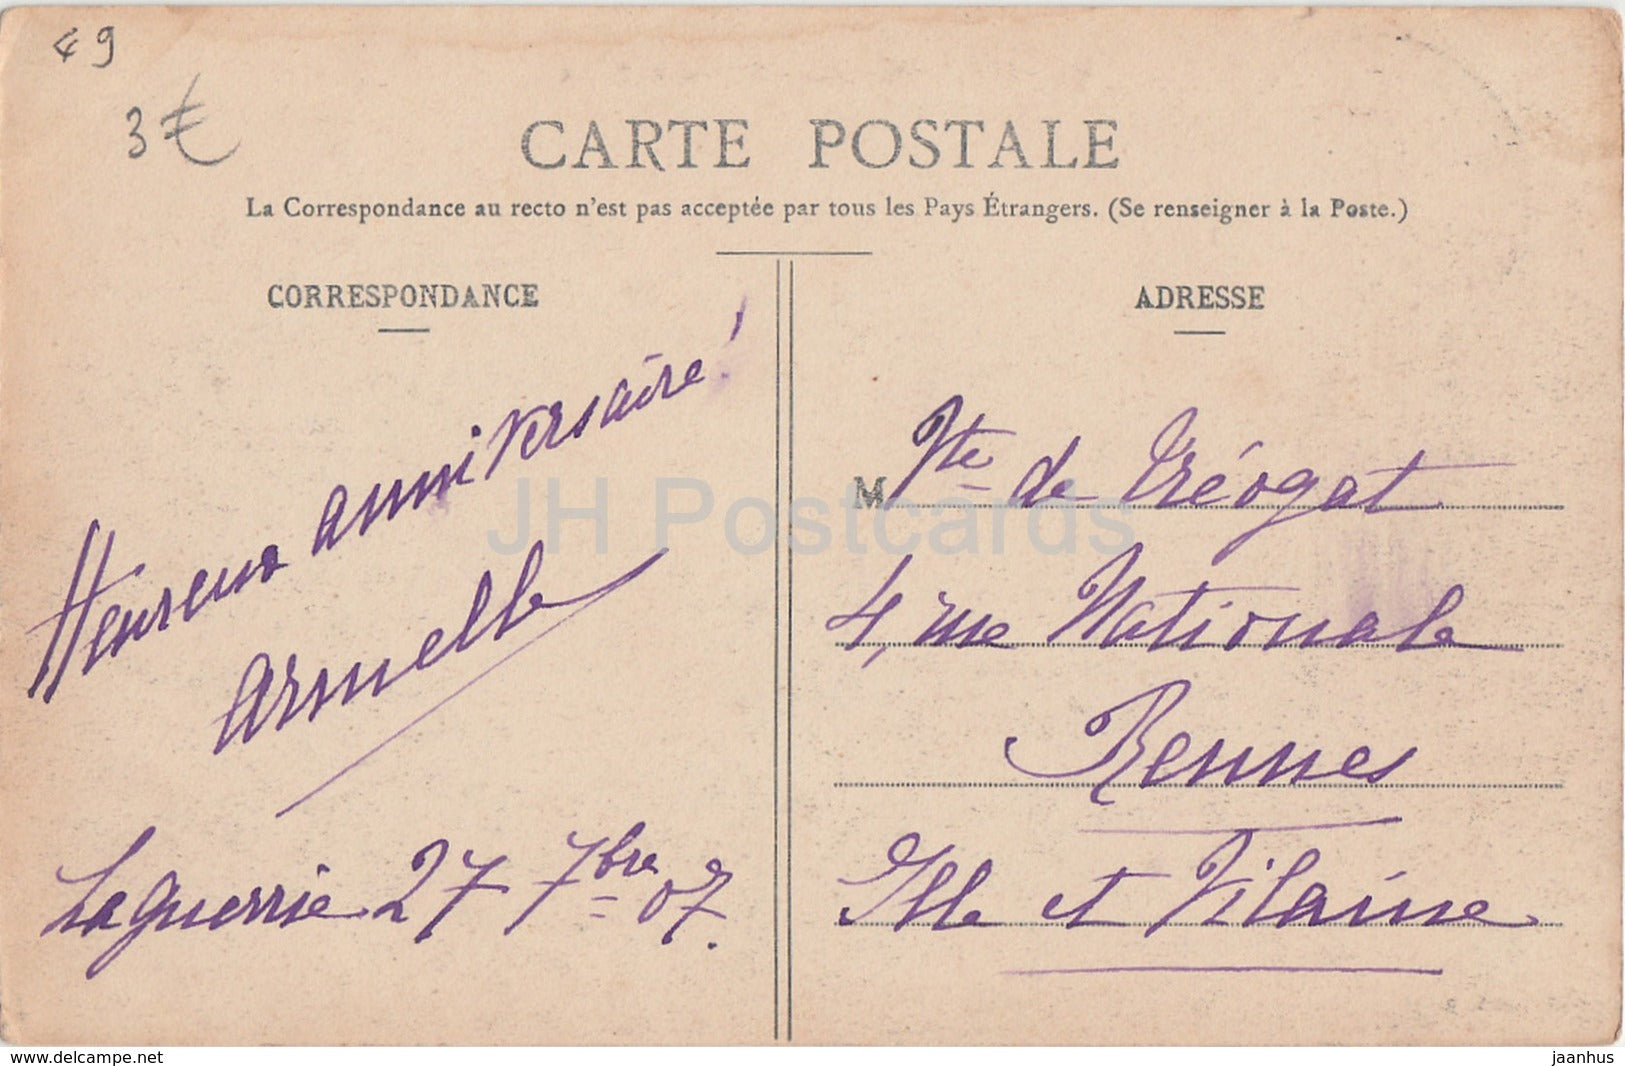 49
3€
CARTE POSTALE
La Correspondance au recto n'est pas acceptée par tous les Pays Étrangers. (Se renseigner à la Poste.)
CORRESPONDANCE
Heureux anniversaire!
Armelle
Laguerrie 27 7bre 07.
ADRESSE
M Vte de Tréogat
4, rue Nationale
Rennes
Ille et Vilaine
JH Postcards
www.delcampe.net
jaanhus